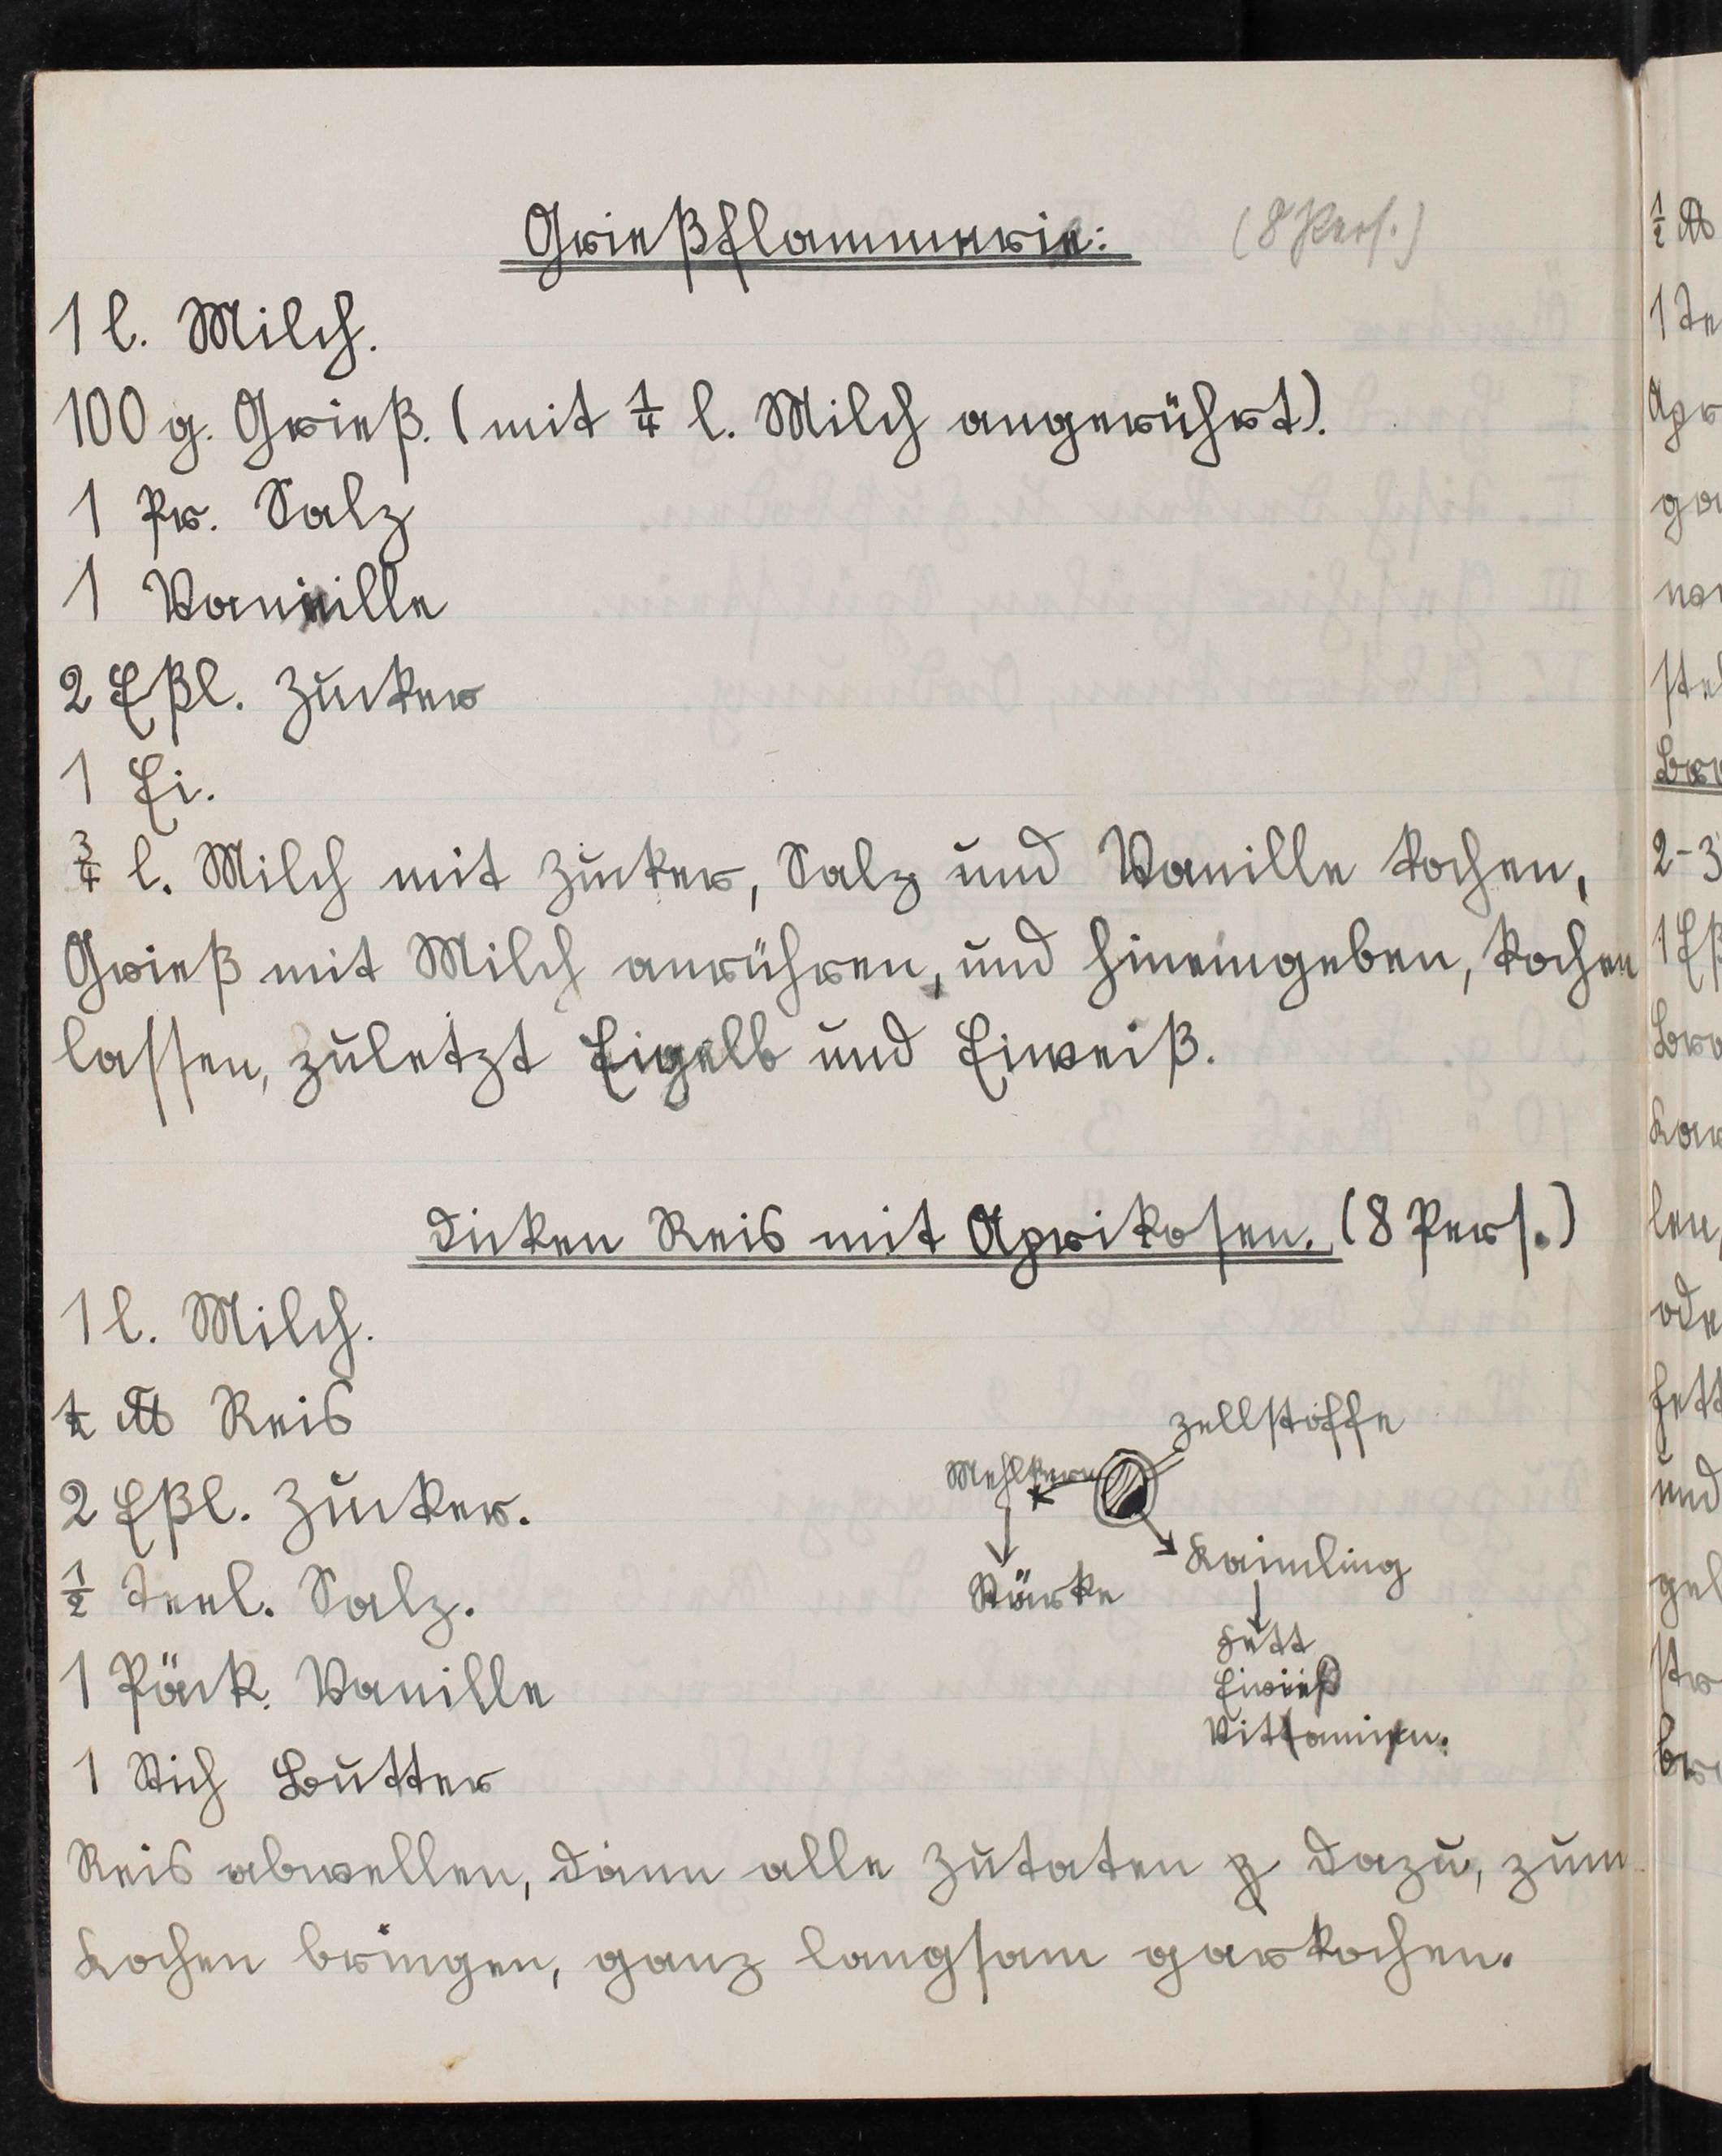 Grießflammerie: (8 Pers.)
1 l. Milch.
100 g. Grieß. (mit 1/4 l. Milch angerührt).
1 Pr. Salz
1 Vanille
2 Eßl. Zucker
1 Ei.
3/4 l. Milch mit Zucker, Salz und Vanille kochen,
Grieß mit Milch anrühren, und hineingeben, kochen
lassen, zuletzt Eigelb und Eiweiß.
Dicken Reis mit Aprikosen. (8 Pers.)
1 l. Milch.
1/2 ℔ Reis
2 Eßl. Zucker.
1/2 Teel. Salz.
1 Päck. Vanille
1 Stich Butter
Zellstoffe
Mehlkern
Kaimling
Stärke
Fett
Eiweiß
Vittaminen.
Reis abwellen, dann alle Zutaten dazu, zum
Kochen bringen, ganz langsam garkochen.
1/2 ℔
1 Te
Apr
2-3
1 Eß
len,
ode
Fett
und
gel